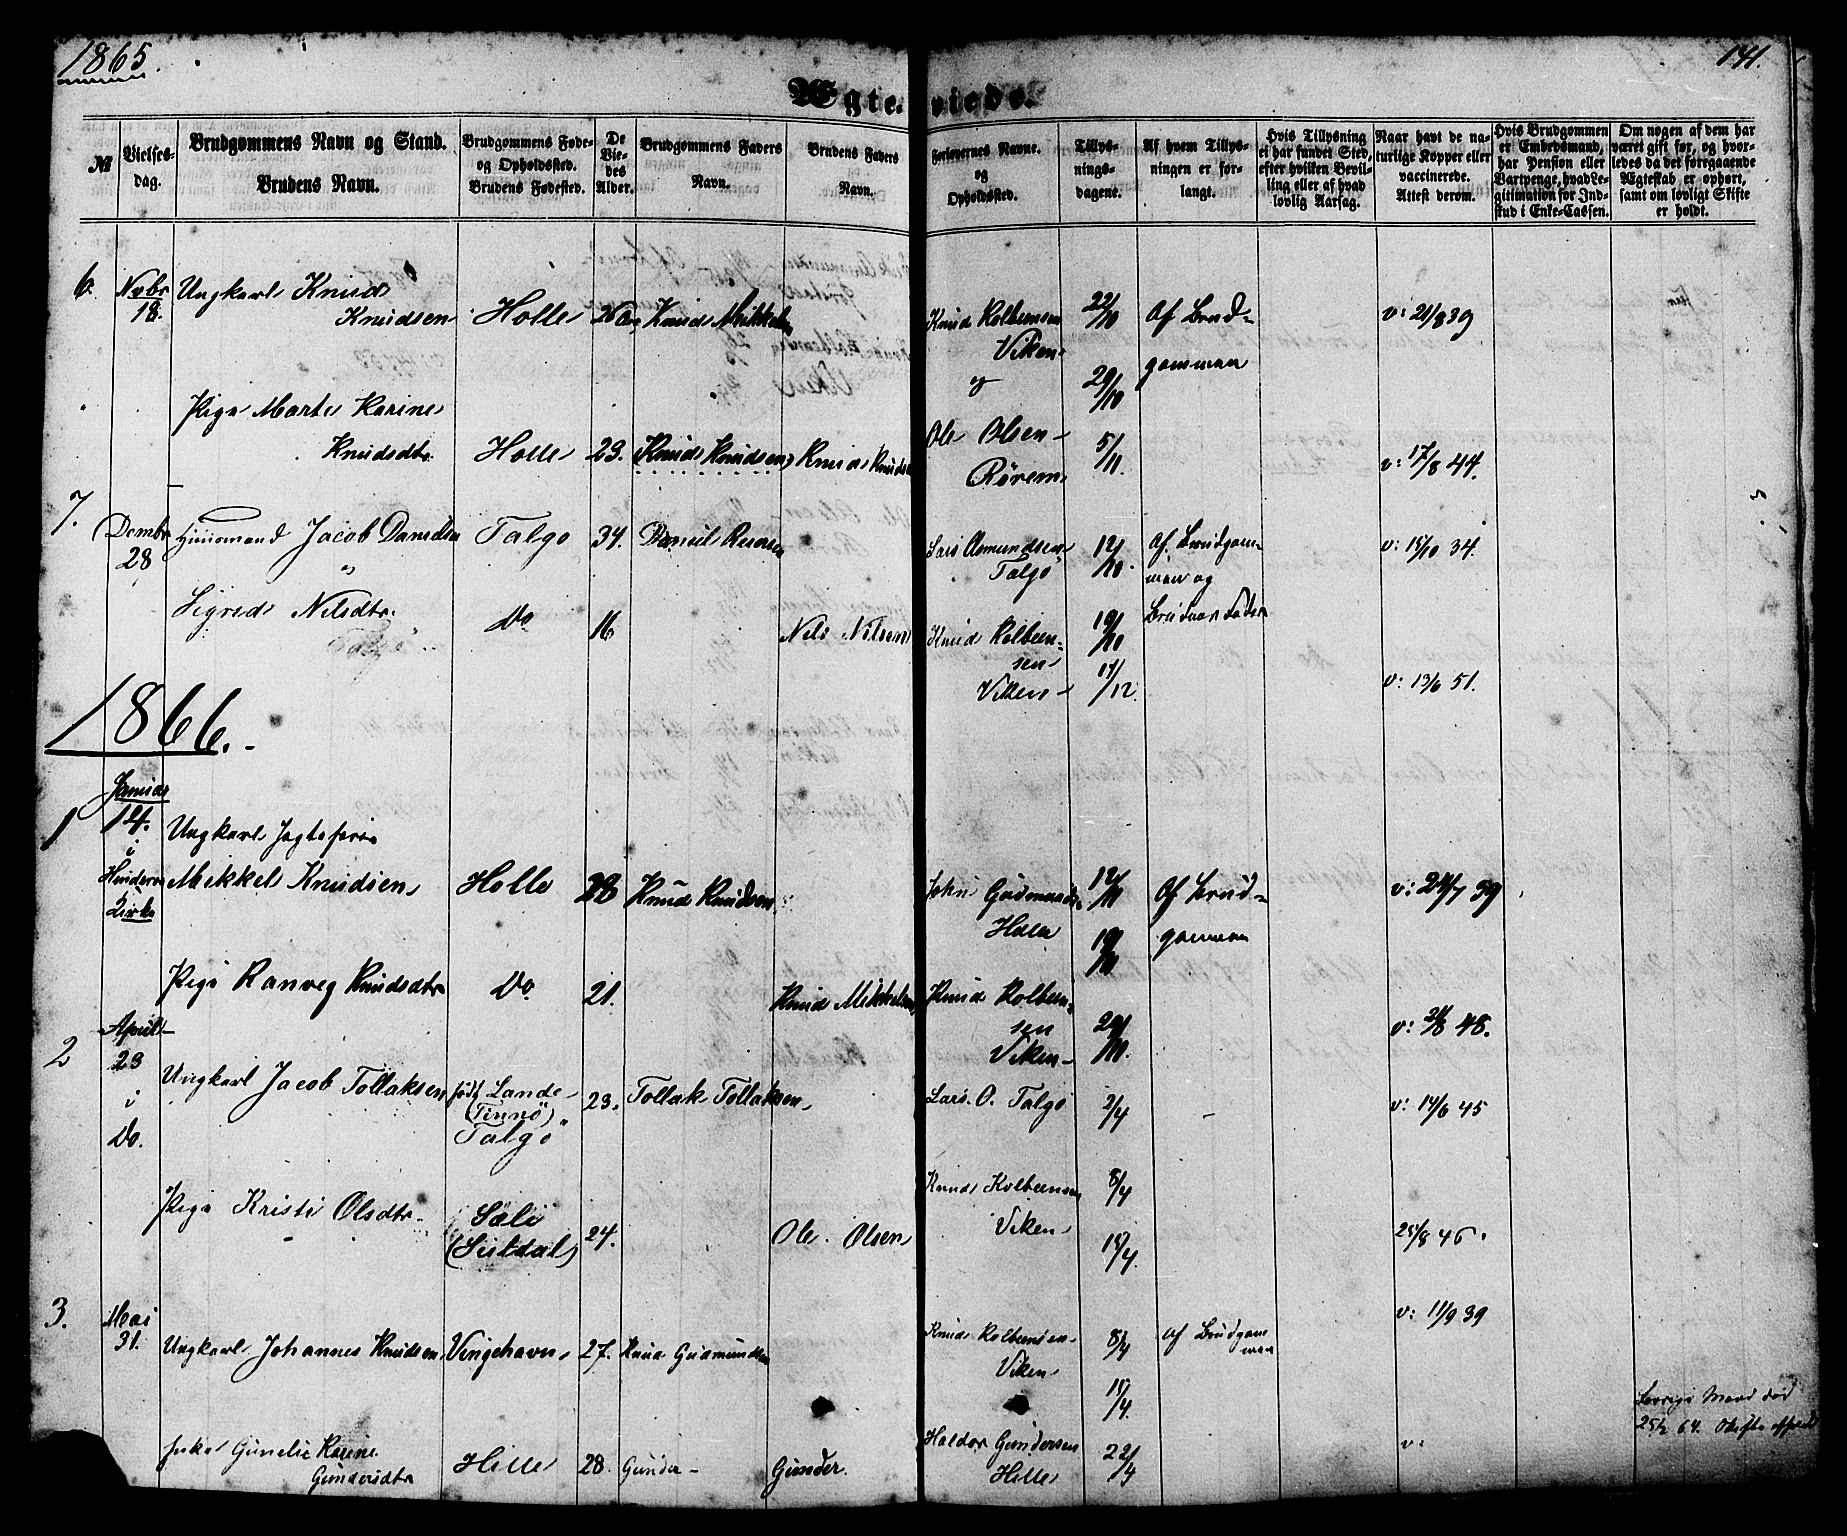 1865.
141.
Ægteviede.
№
Vielses-
dag.
Brudgommens Navn og Stand.
Brudens Navn.
Brudgommens Føde-
og Opholdssted.
Brudens Fødested.
De
Vie-
des
Alder.
Brudgommens Faders
Navn.
Brudens Faders
Navn.
Forlovernes Navne.
og
Opholdssted.
Tillys-
nings-
dagene.
Af hvem Tillys-
ningen er for-
langt.
Hvis Tillysning
ei har fundet Sted,
efter hvilken Bevil-
ling eller af hvad
lovlig Aarsag.
Naar havt de na-
turlige Kopper eller
vaccinerede.
Attest derom.
Hvis Brudgommen
er Embedsmand,
har Pension eller
Vartpenge, hvad Le-
gitimation for Ind-
skud i Enke-Cassen.
Om nogen af dem har
været gift før, og hvor-
ledes da det foregaaende
Ægteskab er ophørt,
samt om lovligt Skifte
er holdt.
6.
Novbr
18.
Ungkarl Knud
Knudsen
Holle
Knud Mikkelsen
Knud Kolbeensen
Viken
og
22/10
29/10
Af Brud-
gommen
v: 21/8 39
Pige Marte Karine
Knudsdtr.
Holle
23.
Knud Knudsen
Knud Knuds
Ole Olsen
Rørem
5/11.
v: 17/8 44.
7.
Decmbr
28
Huusmand Jacob Danielsen
Talgo
34.
Daniel
Lars Asmundsen
Talgö
12/10.
Af Brudgom-
men og
Brudens Fader
v: 15/10 34.
Sigred Nilsdtr.
Talgö
Do
16
Nils Nilsen
Knud Kolbeen-
sen
Viken
19/10
17/12
v: 13/6 51.
1866.
1
Januar
14.
i
Hinderø
Kirke
Ungkarl Jagtefører
Mikkel Knudsen
Holle
28
Knud Knudsen
John Gudmunds.
Holle
12/11
19/11
Af Brud-
gommen
v: 24/7 39
Pige Ranveg Knudsdtr
Do.
21.
Knud Mikkelsen
Knud Kolbeen-
sen
Viken
29/10.
v: 24/8 48.
2
April
23
i
Do.
Ungkarl Jacob Tollaksen
født Lande
(Finnö)
Talgö
23.
Tollak Tollaksen
Lars. O. Talgö
2/4
v: 14/6 45
Pige Kristi Olsdtr.
Sæli
(Suldal)
24.
Ole Olsen
Knud Kolbeensen
Viken
8/4
15/4.
25/8 46.
3.
Mai
31.
Ungkarl Johannes Knudsen
Vingehavn
27.
Knud Gudmundsen
Knud Kolbeensen
Viken
8/4
15/4.
Af Brudgom
men
v: 11/9 39
Enke Gunelie Karine
Gundersdtr
Hille
28.
Gunder
Gunder.
Haldor Gundersen
Hille
22/4
v:
Forrige Mand død
25/2 64.